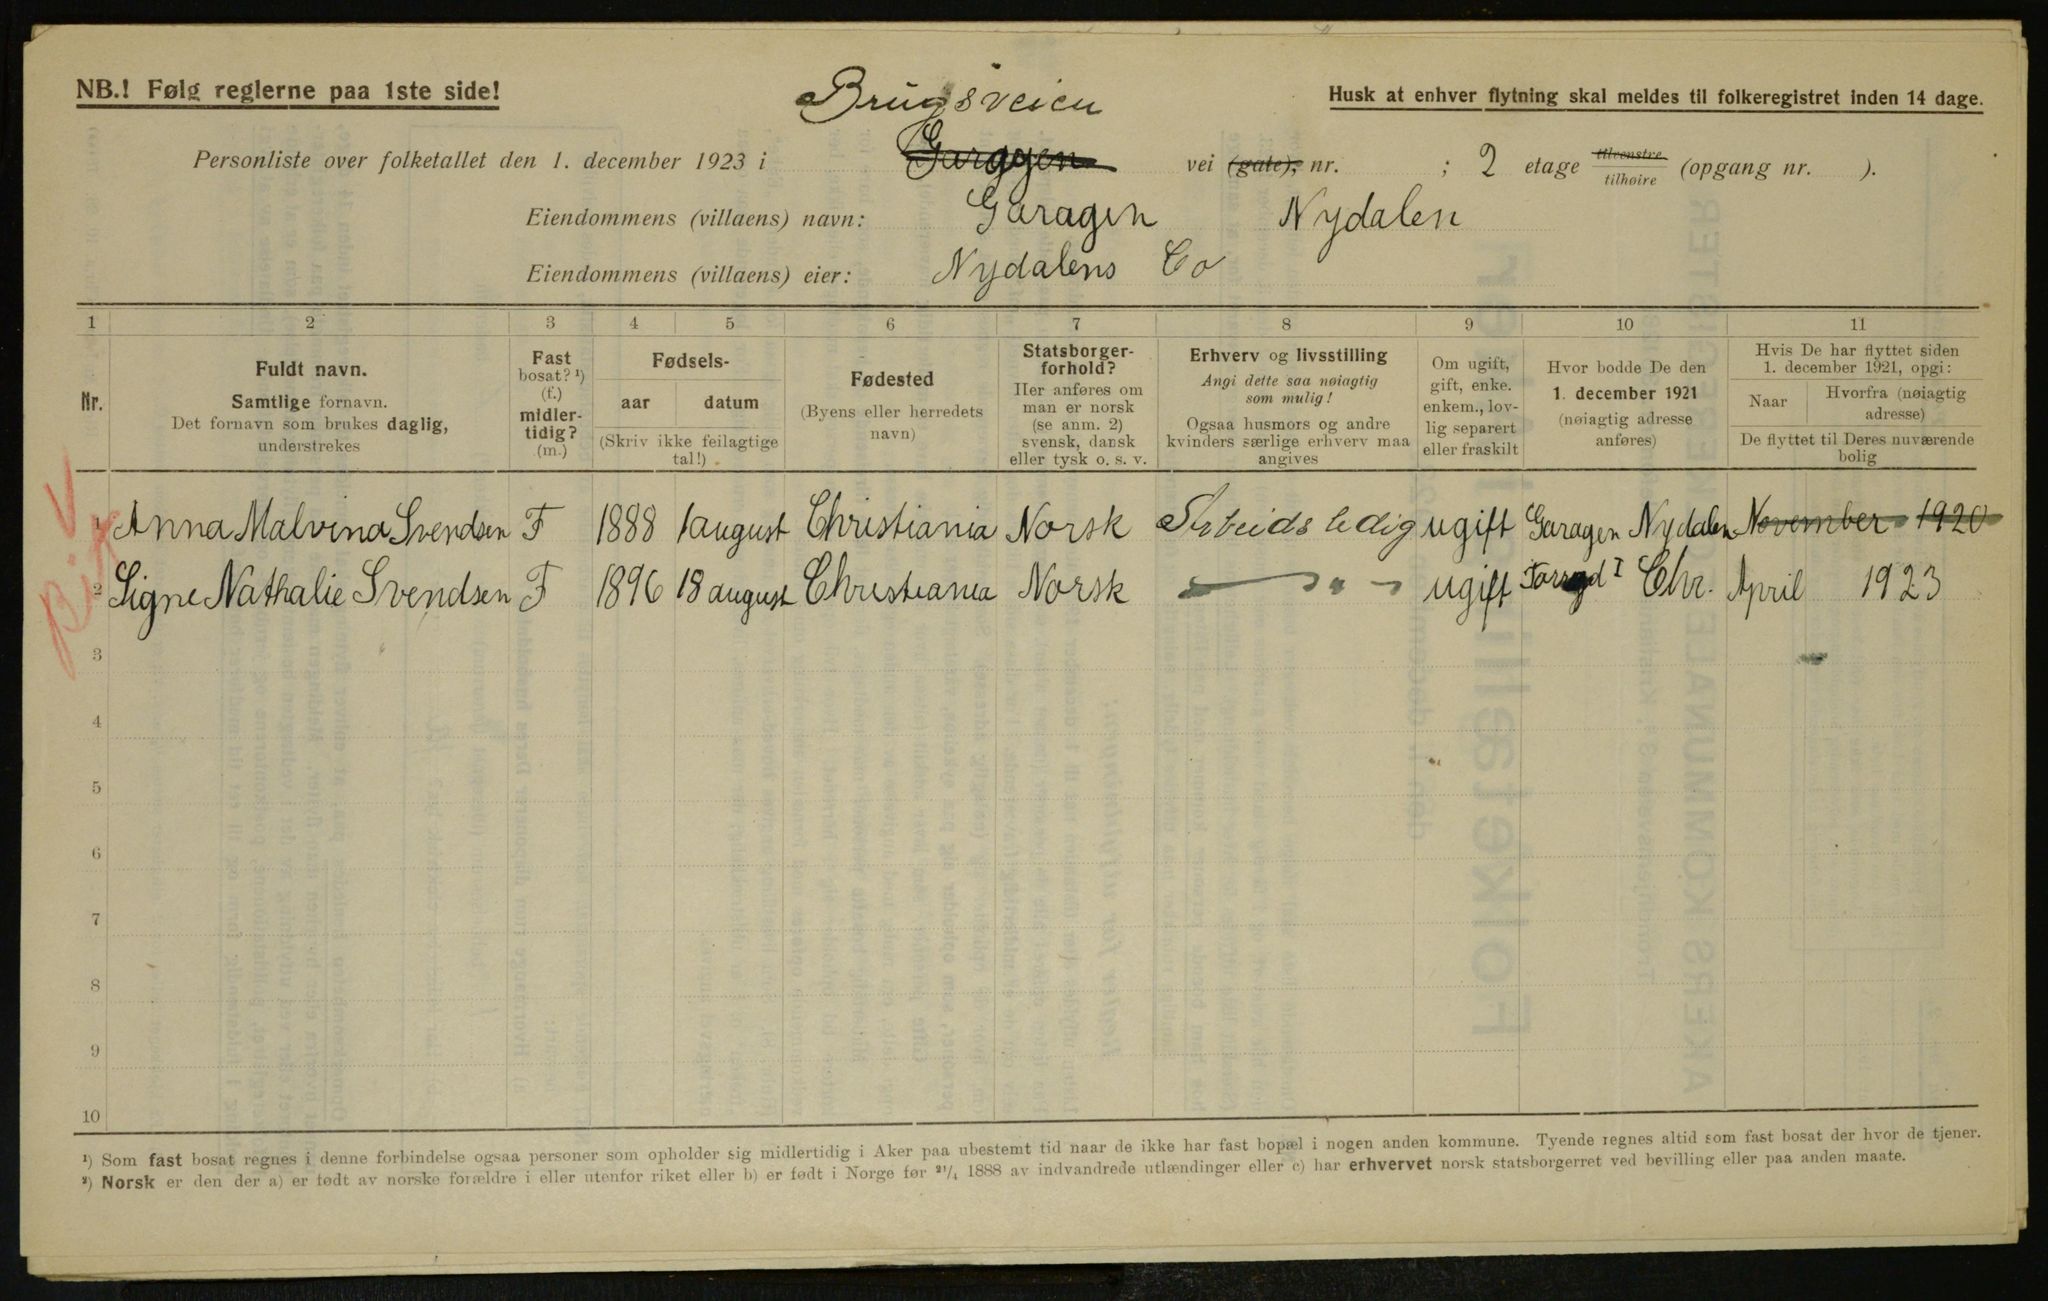 NB.! Følg reglerne paa 1ste side!
Husk at enhver flytning skal meldes til folkeregistret inden 14 dage.
Brugsveien
Personliste over folketallet den 1. december 1923 i Garagen vei (gate), nr. ; 2 etage tilvenstre tilhøire (opgang nr. ).
Eiendommens (villaens) navn: Garagen Nydalen
Eiendommens (villaens) eier: Nydalens Co
1 2 3 4 5 6 7 8 9 10 11
Nr.
Fuldt navn.
Samtlige fornavn.
Det fornavn som brukes daglig,
understrekes
Fast
bosat? ¹)
(f.)
midler-
tidig?
(m.)
Fødsels-
aar datum
(Skriv ikke feilagtige
tal!)
Fødested
(Byens eller herredets
navn)
Statsborger-
forhold?
Her anføres om
man er norsk
(se anm. 2)
svensk, dansk
eller tysk o. s. v.
Erhverv og livsstilling
Angi dette saa nøiagtig
som mulig!
Ogsaa husmors og andre
kvinders særlige erhverv maa
angives
Om ugift,
gift, enke.
enkem., lov-
lig separert
eller fraskilt
Hvor bodde De den
1. december 1921
(nøiagtig adresse
anføres)
Hvis De har flyttet siden
1. december 1921, opgi:
Naar
Hvorfra (nøiagtig
adresse)
De flyttet til Deres nuværende
bolig
1 Anna Malvina Svendsen F 1888 1 august Christiania Norsk Arbeidsledig ugift Garagen Nydalen November 1920
2 Signe Nathalie Svendsen F 1896 18 august Christiania Norsk — " — ugift Chr. April 1923
3
4
5
6
7
8
9
10
¹) Som fast bosat regnes i denne forbindelse ogsaa personer som opholder sig midlertidig i Aker paa ubestemt tid naar de ikke har fast bopæl i nogen anden kommune. Tyende regnes altid som fast bosat der hvor de tjener.
²) Norsk er den der a) er født av norske forældre i eller utenfor riket eller b) er født i Norge før ²¹/₄ 1888 av indvandrede utlændinger eller c) har erhvervet norsk statsborgerret ved bevilling eller paa anden maate.